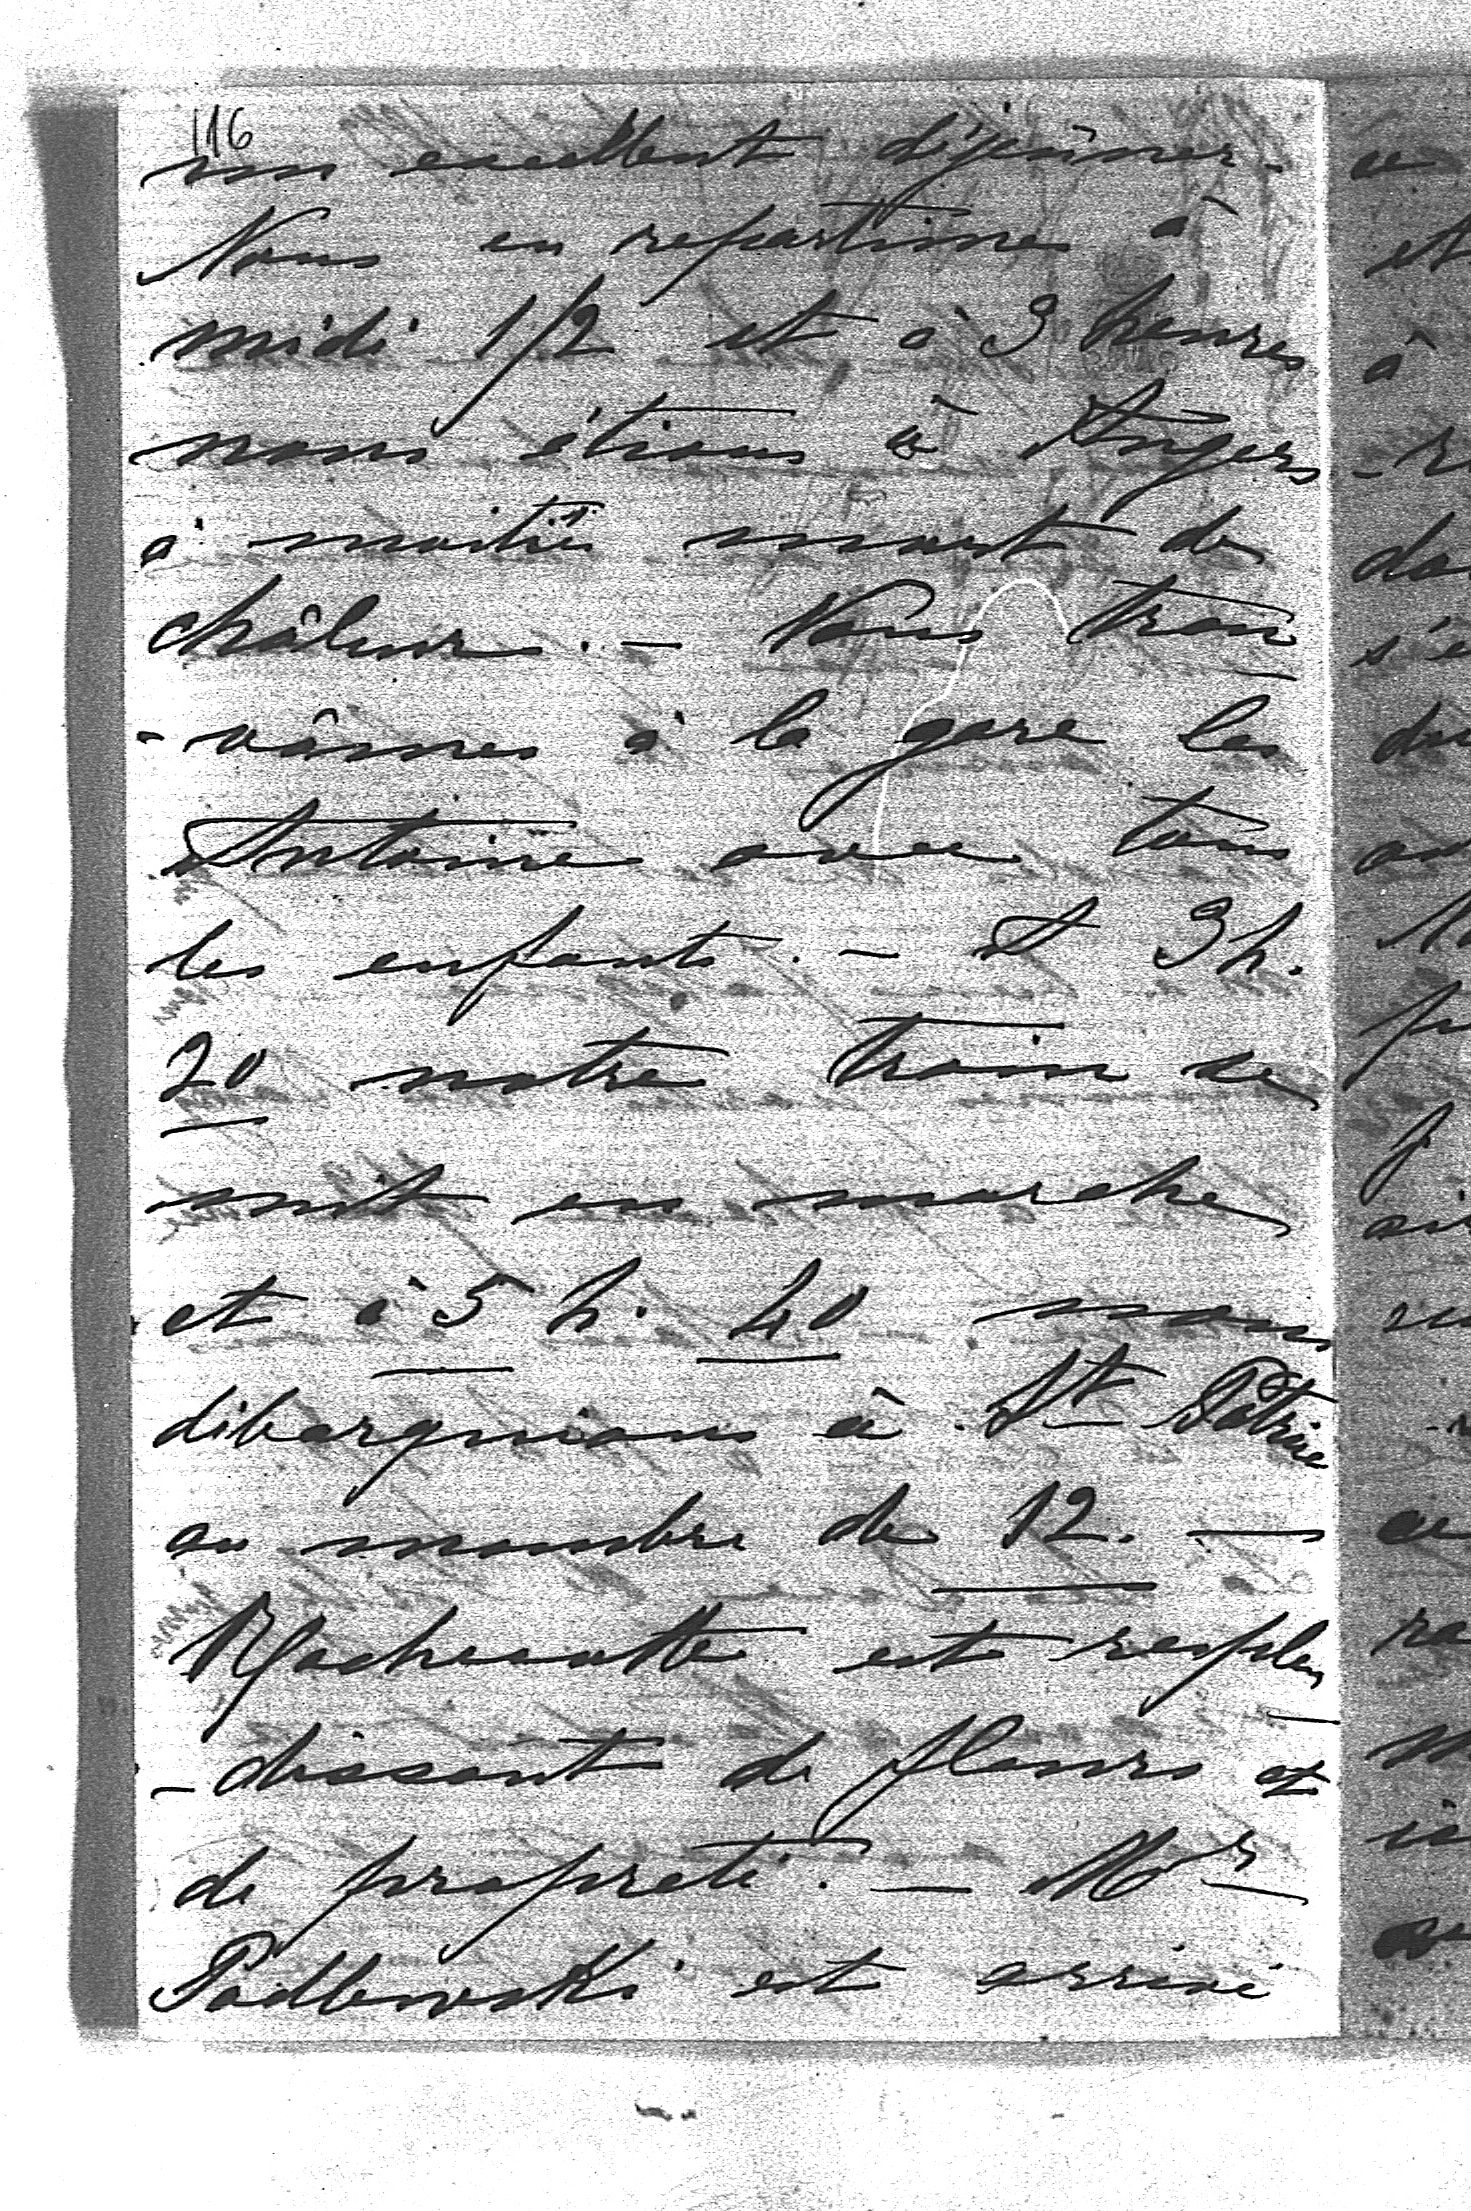 116
un excellent déjeûner.
Nous en repartîmes à
midi 1/2 et à 3 heures
nous étions à Angers
à moitié mort de
châleur. – Nous trou
-vâmes à la gare les
Antoine avec tous
les enfants. – A 3 h.
20 notre train se
mit en marche
et à 5 h. 40 nous
débarquions à St Patrice
au nombre de 12. —
Rochecotte est resplen
-dissant de fleurs et
de propreté. — Mr
Podlewski est arrivé